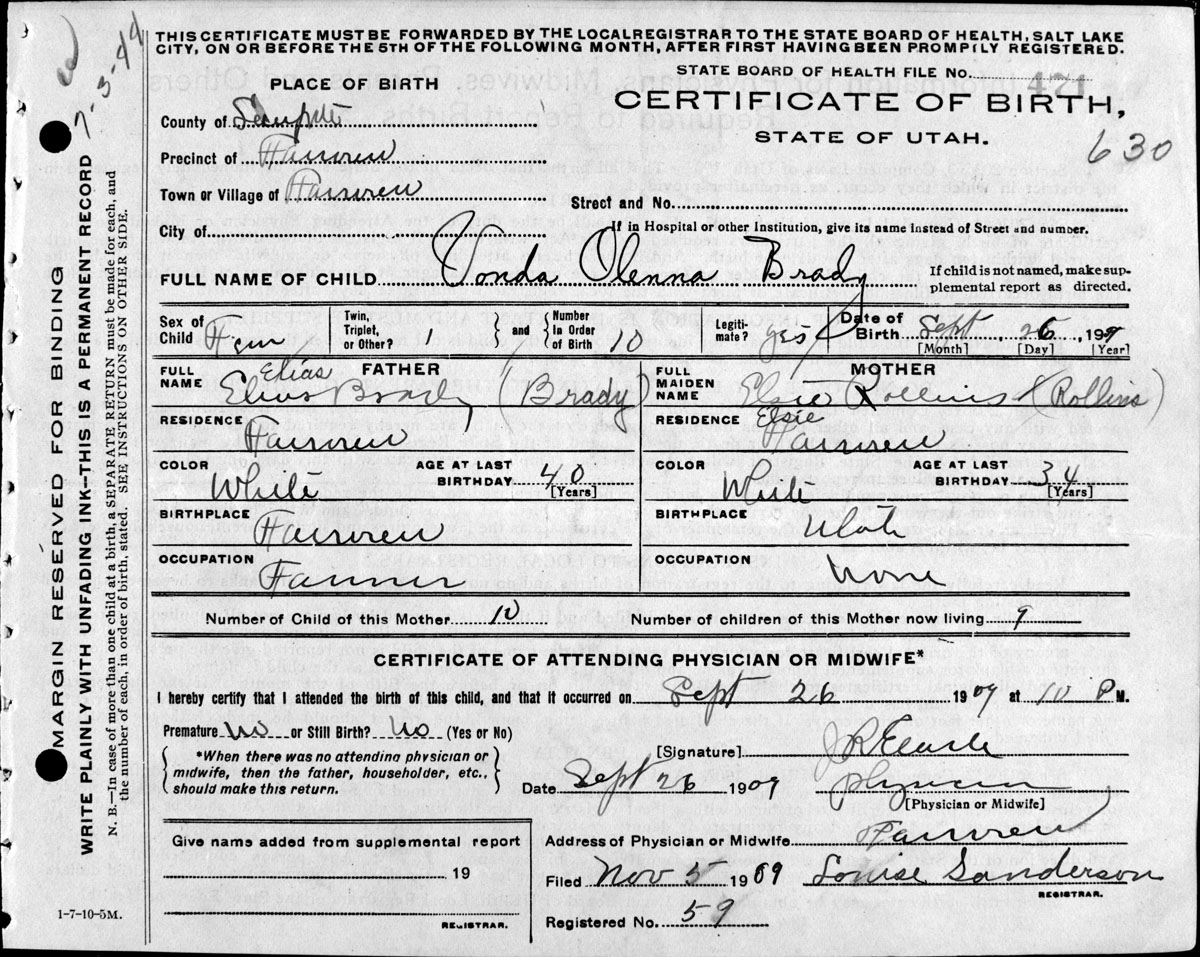 7-5-44
THIS CERTIFICATE MUST BE FORWARDED BY THE LOCALREGISTRAR TO THE STATE BOARD OF HEALTH, SALT LAKE
CITY, ON OR BEFORE THE 5TH OF THE FOLLOWING MONTH, AFTER FIRST HAVING BEEN PROMPTLY REGISTERED.
STATE BOARD OF HEALTH FILE NO. 471
PLACE OF BIRTH
CERTIFICATE OF BIRTH,
STATE OF UTAH.
630
County of Sanpete
Precinct of Fairview
Town or Village of Fairview
Street and No.
City of
If in Hospital or other Institution, give its name instead of Street and number.
FULL NAME OF CHILD Vonda Olenna Brady
If child is not named, make sup-
plemental report as directed.
Sex of Child Fem
Twin, Triplet, or Other? 1 { and } Number In Order of Birth 10
Legiti- mate? yes
Date of Birth Sept, 26, 1909
[Month] [Day] [Year]
FATHER
FULL NAME Elias
Elias Brady (Brady)
RESIDENCE Fairview
COLOR White
AGE AT LAST BIRTHDAY 40
[Years]
BIRTHPLACE Fairview
OCCUPATION Farmer
MOTHER
FULL MAIDEN NAME Elsie Rollins (Rollins)
Elsie
RESIDENCE Fairview
COLOR White
AGE AT LAST BIRTHDAY 34
[Years]
BIRTHPLACE Utah
OCCUPATION None
Number of Child of this Mother 10 Number of children of this Mother now living 9
CERTIFICATE OF ATTENDING PHYSICIAN OR MIDWIFE*
I hereby certify that I attended the birth of this child, and that it occurred on Sept 26 1909 at 10 P M.
Premature No or Still Birth? No (Yes or No)
*When there was no attending physician or
midwife, then the father, householder, etc.,
should make this return.
[Signature]
Date Sept 26 1909 physician
[Physician or Midwife]
Give name added from supplemental report
19
REGISTRAR.
Address of Physician or Midwife Fairview
Filed Nov 5 1909 Louise Sanderson
REGISTRAR.
Registered No. 59
1-7-10-5M.
MARGIN RESERVED FOR BINDING
WRITE PLAINLY WITH UNFADING INK-THIS IS A PERMANENT RECORD
N. B.—In case of more than one child at a birth, a SEPARATE RETURN must be made for each, and
the number of each, in order of birth, stated. SEE INSTRUCTIONS ON OTHER SIDE.